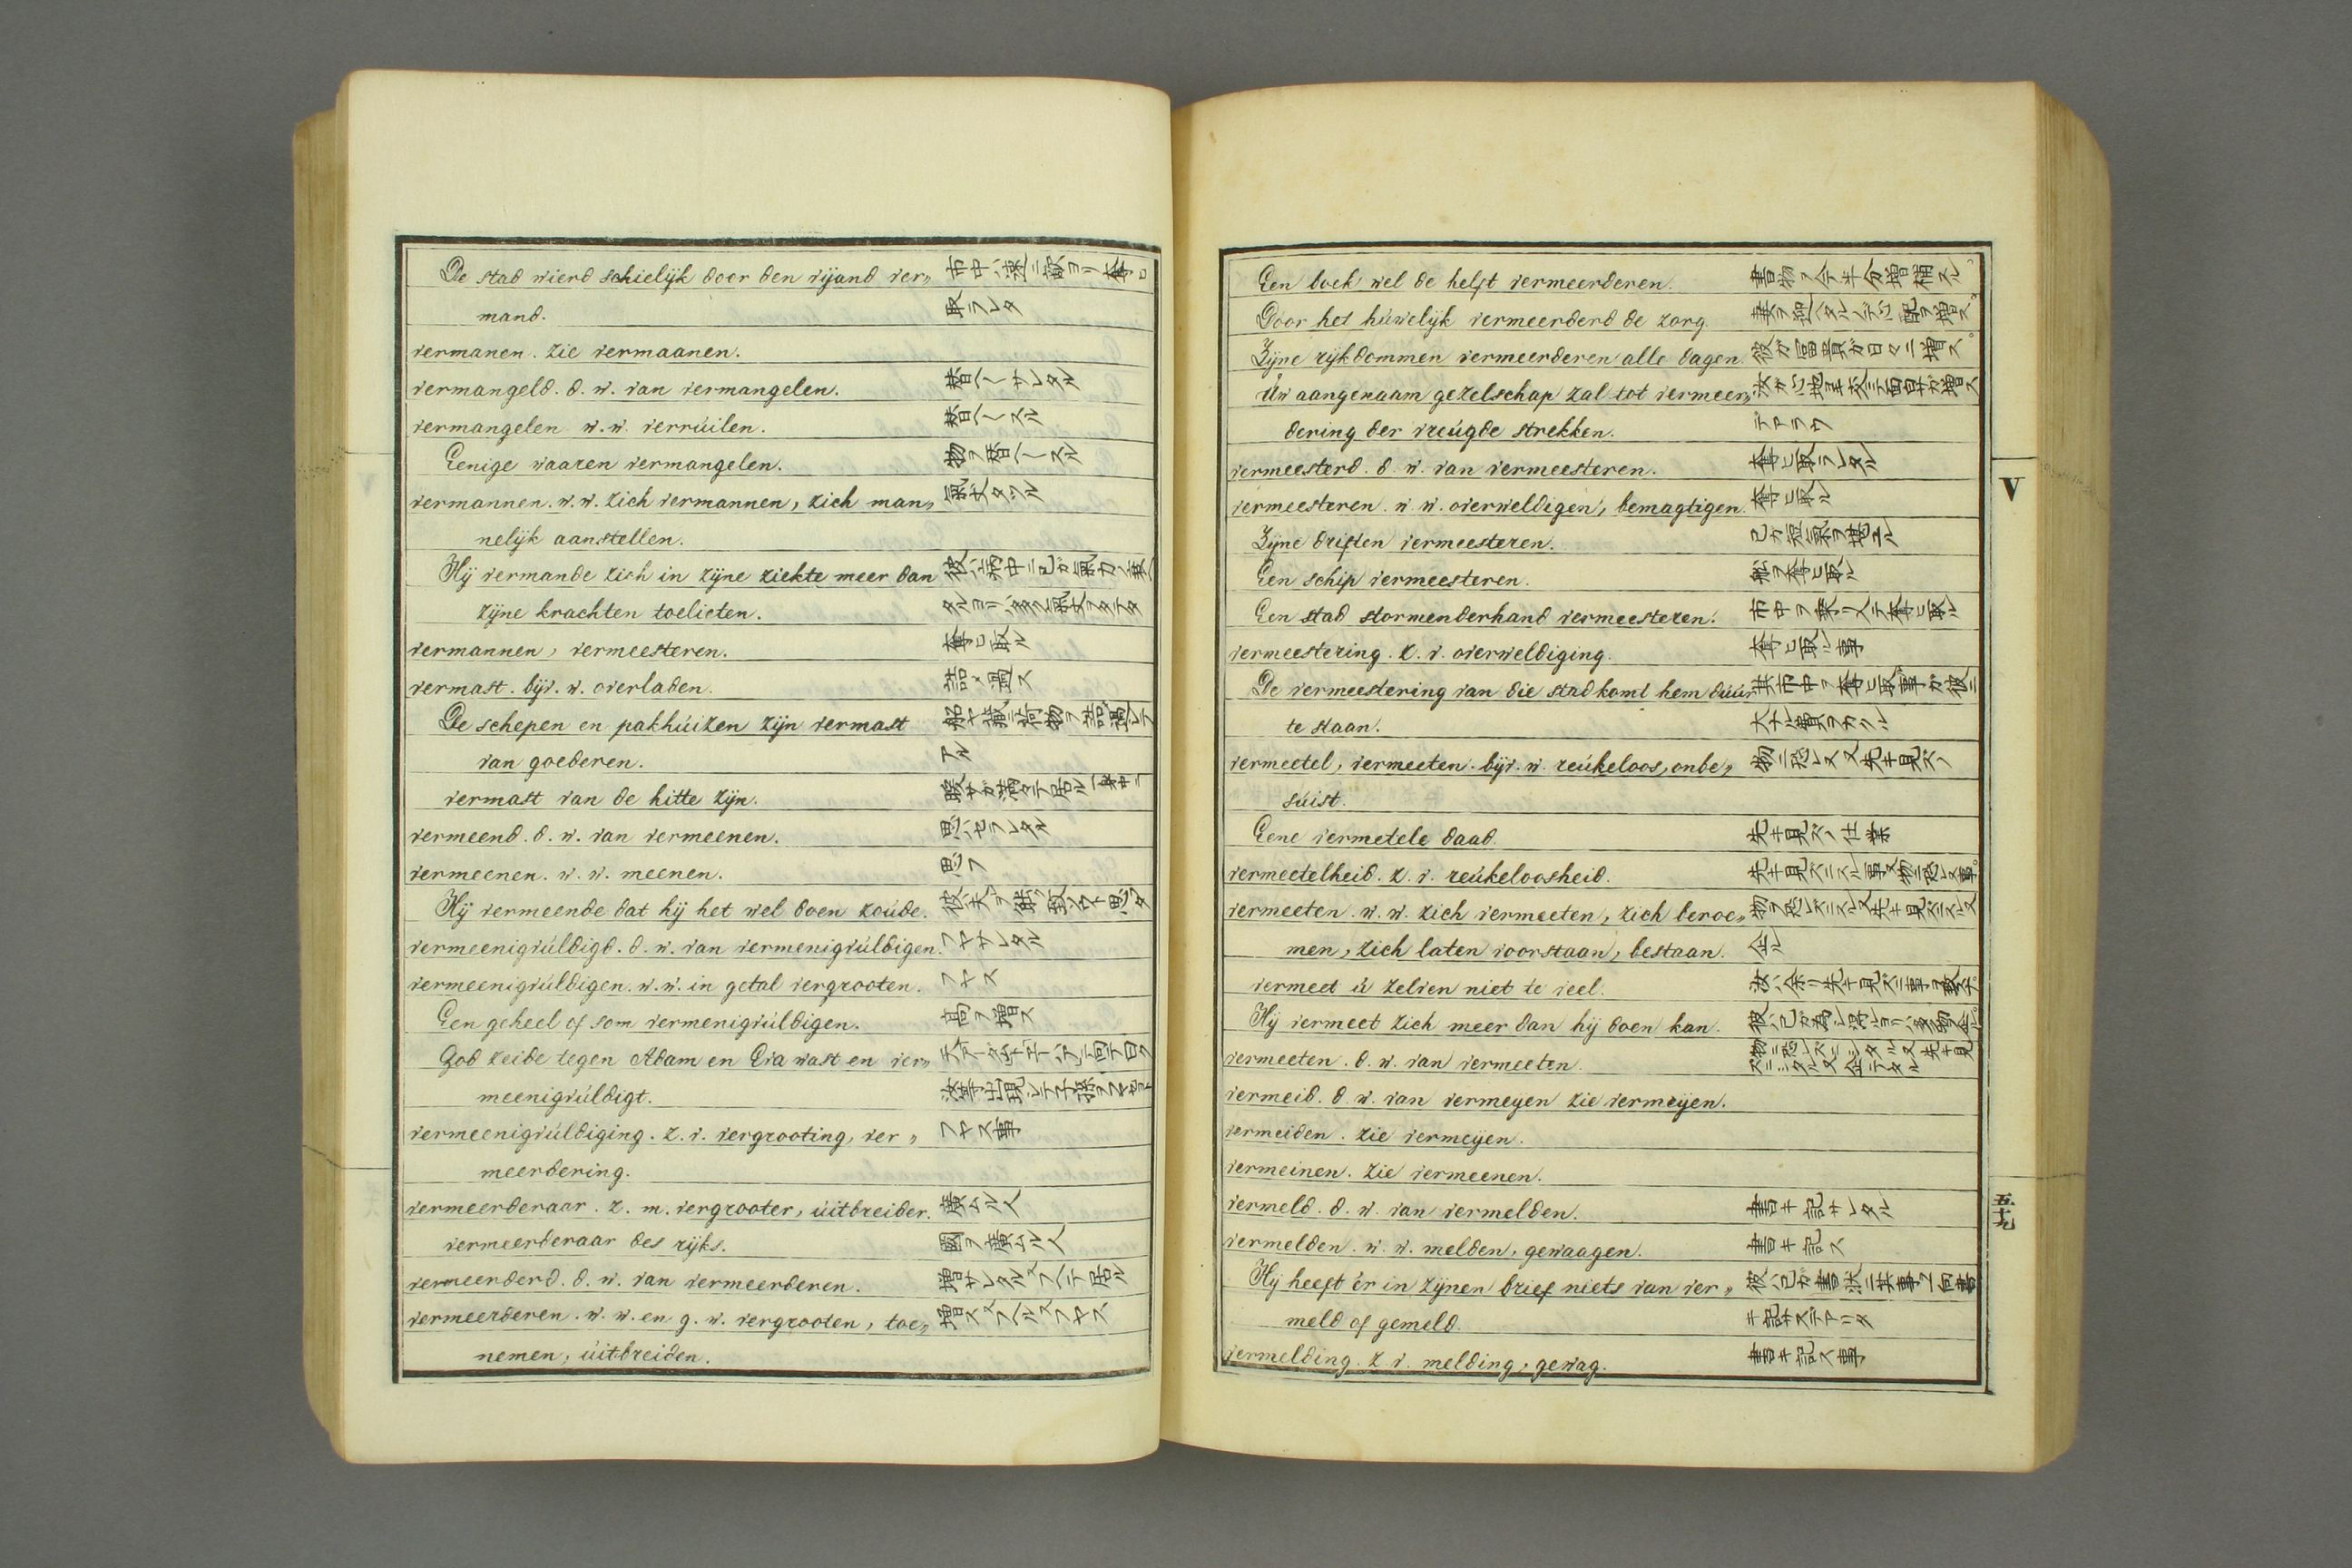 De stad wierd schielijk door den vijand ver„ 市中ハ速ニ敵ヨリ奪ヒ
mand. 取ラレタ
vermanen. zie vermaanen.
vermangeld. d. w. van vermangelen. 替ヘーサレタル
vermangelen w. w. verrúilen. 替ヘースル
Eenige waaren vermangelen. 物ヲ替ヘースル
vermannen. w. w. zich vermannen, zich man„ 氣丈タツル
nelijk aanstellen.
Hij vermande zich in zijne ziekte meer dan 彼ハ病中ニ己ガ氣力ノ
zijne krachten toelieten. タルヨリハ多ク氣丈ヲタテタ
vermannen, vermeesteren. 奪ヒ取ル
vermast. bijv. w. overladen. 詰メ過ス
De schepen en pakhúizen zijn vermast 船ヤ藏ニ荷物ヲ詰過シテ
van goederen. アル
vermast van de hitte zijn. 暖サガ満チテ居ル
vermeend. d. w. van vermeenen. 思ハセラレタル
vermeenen. w. w. meenen. 思フ
Hij vermeende dat hij het wel doen zoúde. 彼ハ夫ヲ能ク致ソウト思タ
vermeenigvúldigd. d. w. van vermenigvúldigen. フヤサレタル
vermeenigvúldigen. w. w. in getal vergrooten. フヤス
Een geheel of som vermenigvúldigen. 高ヲ増ス
God zeide tegen Adam en Eva wast en ver„
meenigvúldigt. 汝等出現シテ子孫ヲフヤセヨト
vermeenigvúldiging. z. v. vergrooting, ver„ フヤス事
meerdering.
vermeerderaar. z. m. vergrooter, úitbreider. 廣ムル人
vermeerderaar des rijks. 國ヲ廣ムル人
vermeerderd. d. w. van vermeerderen. 増サレタル又フヘテ居ル
vermeerderen. w. w. en g. w. vergrooten, toe„ 増ス又フヘル又フヤス
nemen, úitbreiden.
Een boek wel de helft vermeerderen. 書物ヲ今半分増補スル
Door het húwelijk vermeerderd de zorg. 妻ヲ迎ヘタルデ心配ヲ増ス
Zijne rijkdommen vermeerderen alle dagen. 彼ガ冨貴ガ日々ニ増ス
Uw aangenaam gezelschap zal tot vermeer„
dering der vreúgde strekken. デアラウ
vermeesterd. d. w. van vermeesteren. 奪ヒ取ラレタル
vermeesteren. w. w. overweldigen, bemagtigen. 奪ヒ取ル
Zijne driften vermeesteren. 己ガ短氣ヲ堪エル
Een schip vermeesteren. 船ヲ奪ヒ取ル
Een stad stormenderhand vermeesteren. 市中ヲ乘リ入テ奪ヒ取ル
vermeestering. z. v. overweldiging. 奪ヒ取ル事
De vermeestering van die stad komt hem dúúr 其市中ヲ奪ヒ取ル事ガ彼ニ
te staan. 大ナル費ヲカクル
vermeetel, vermeeten. bijv. w. reúkeloos, onbe„ 物ニ恐レヌ又先キ見ズノ
súist.
Eene vermetele daad. 先キ見ズノ仕業
vermeetelheid. z. v. reúkeloosheid. 先キ見ズニスル事又物ニ恐レヌ事
vermeeten. w. w. zich vermeeten, zich beroe„ 物ヲ恐レズニスル又先キ見ズニスル又
men, zich laten voorstaan, bestaan. 企ル
vermeet ú zelven niet te veel. 汝ハ余リ先キ見ズニ事ヲ
Hij vermeet zich meer dan hij doen kan. 彼ハ己ガ為シ得ルヨリハ多ク
vermeeten. d. w. van vermeeten. 物ニ恐レズニシタル又先キ見ズニシタル又企テタル
vermeid. d. w. van vermeyen zie vermeijen.
vermeiden. zie vermeijen.
vermeinen. zie vermeenen.
vermeld. d. w. van vermelden. 書キ記サレタル
vermelden. w. w. melden, gewaagen. 書キ記ス
Hij heeft ér in zijnen brief niets van ver„ 彼ハ己ガ書状ニ其事ヲ一向書
meld of gemeld. キ記サズデアリタ
vermelding. z. v. melding, gewag. 書キ記ス事
V
五十九